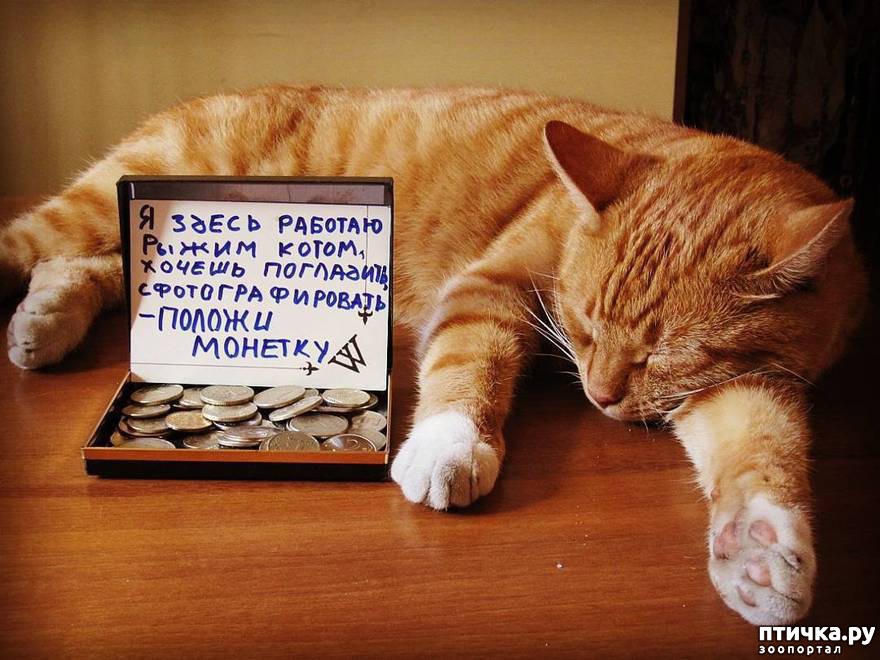 Я ЗДЕСЬ РАБОТАЮ
РЫЖИМ КОТОМ,
ХОЧЕШЬ ПОГЛАДИТЬ,
СФОТОГРАФИРОВАТЬ
-ПОЛОЖИ
МОНЕТКУ
птичка.ру
зоопортал